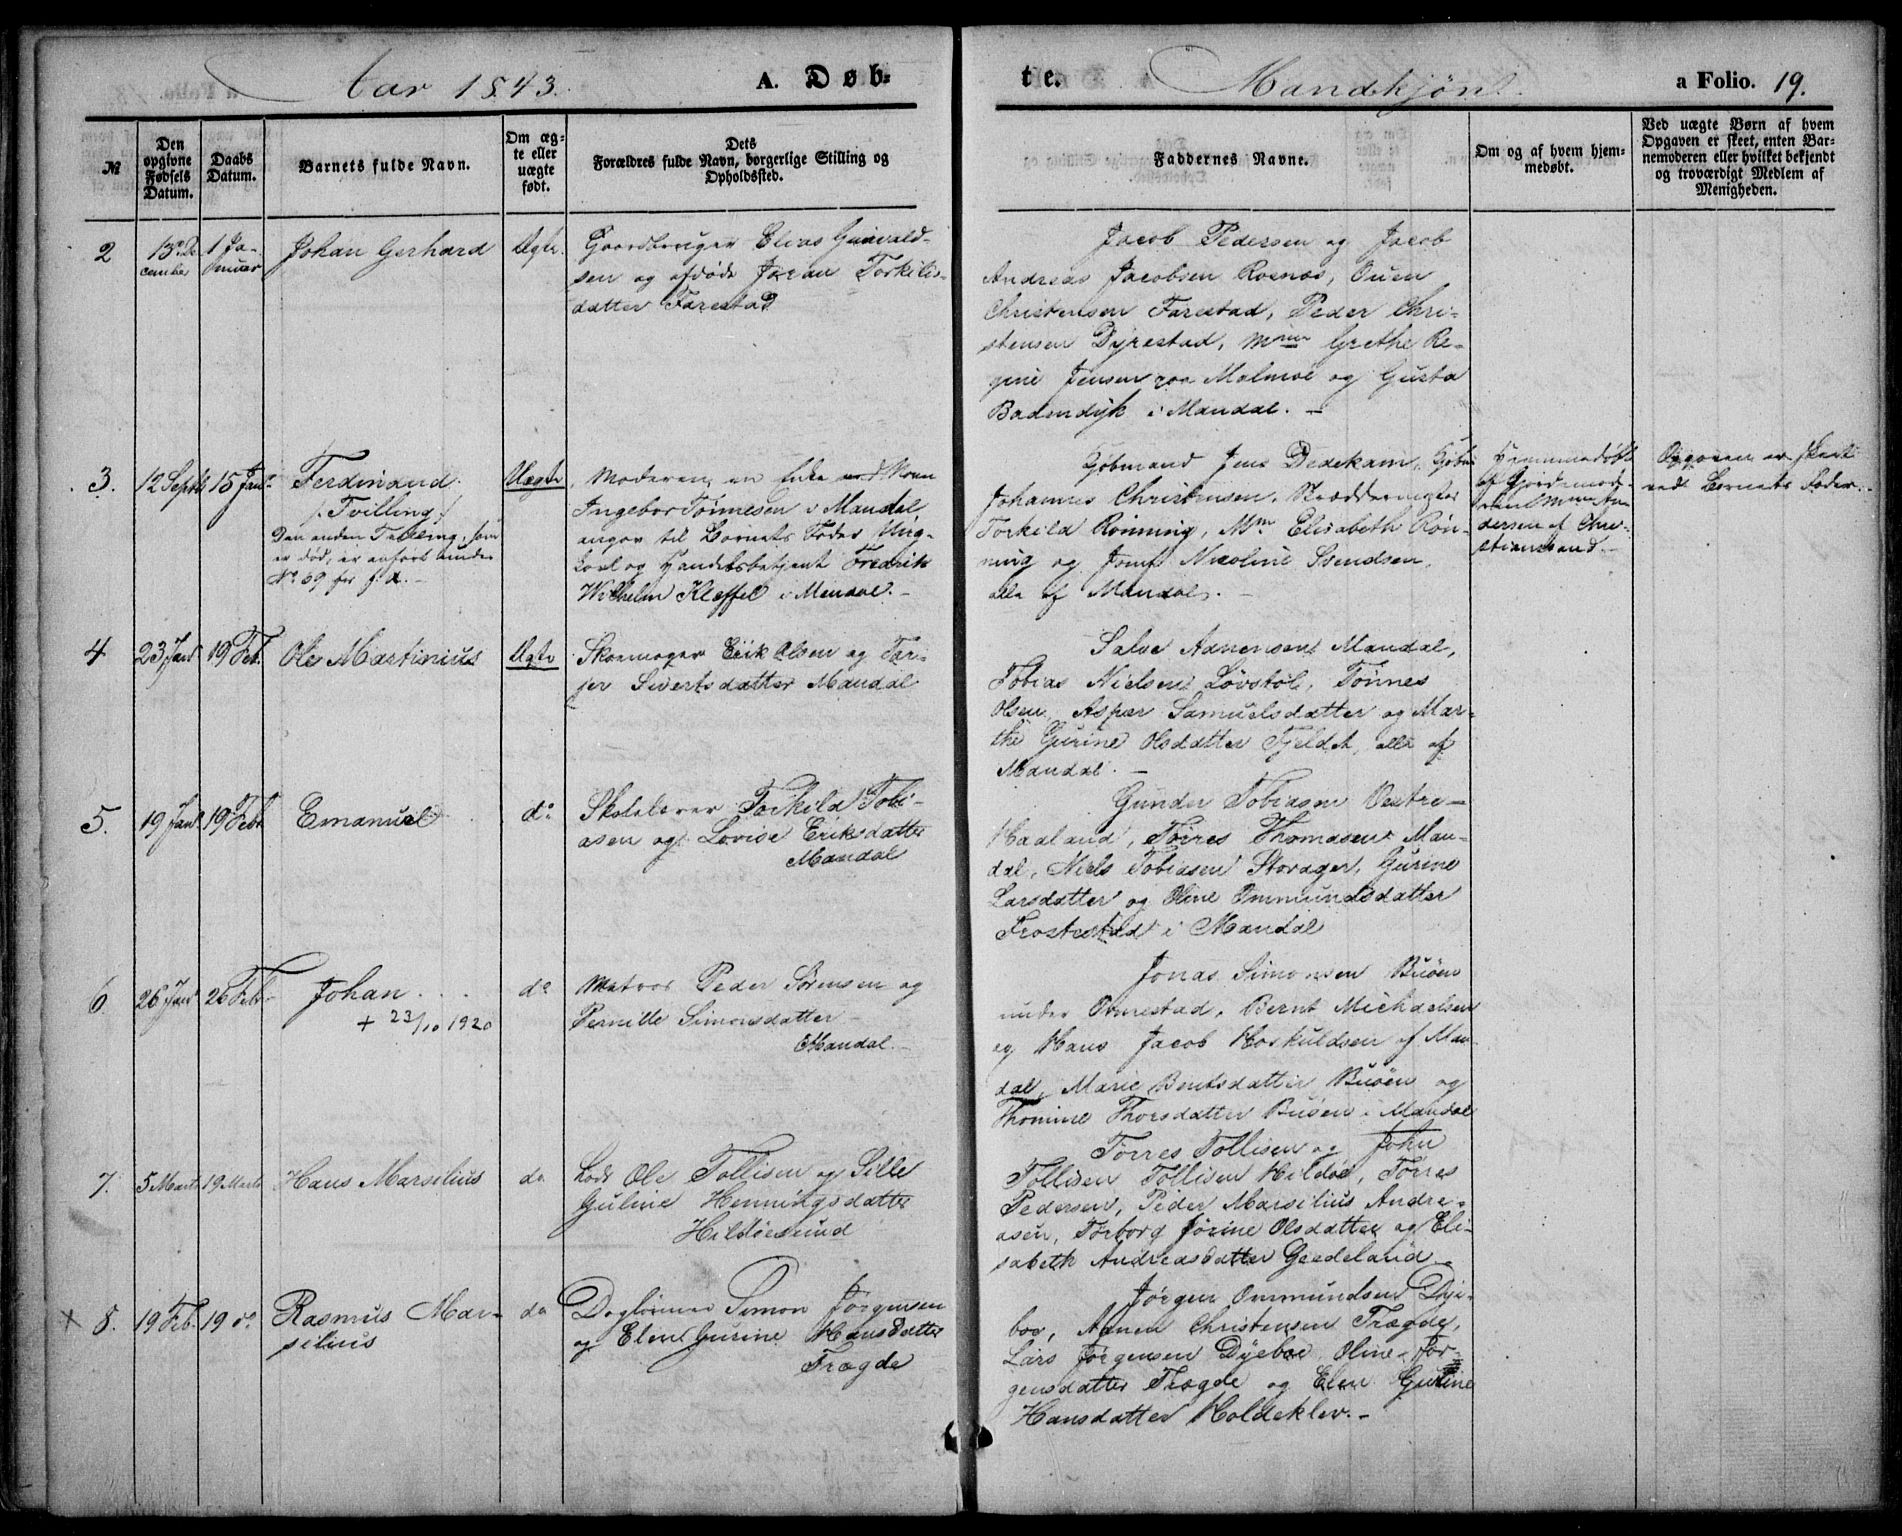 Aar 1843.
A. Døb-
te.
Mandkjøn.
a Folio. 19.
№
Den opgivne Fødsels Datum.
Daabs Datum.
Barnets fulde Navn.
Om ægte eller uægte født.
Dets Forældres fulde Navn, borgerlige Stilling og Opholdssted.
Faddernes Navne.
Om og af hvem hjemmedøbt.
Ved uægte Børn af hvem Opgaven er skeet, enten Barnemoderen eller hvilket bekjendt og troværdigt Medlem af Menigheden.
2
13 De-
cember
1 Ja-
nuar
Johan Gerhard
Ægte.
Gaardbruger Elias Gunvald-
sen og afdøde Joran Torkilds-
datter Farestad
Jacob Pedersen og Jacob
Andreas Jacobsen Rosnæs, Ouen
Christensen Farestad, Peder Chri-
stensen Dyrestad, Mme Grethe Re-
gine Jensen paa Malmøe og Gusta
Badendyk i Mandal. -
3.
12 Septb
15 Janr
Ferdinand.
/: Tvilling :/
Den anden Tvilling, som
er død, er anført under
No 69 for f. A. -
Uægte
Moderen, en Enke ved Navn
Ingebor Tönnesen i Mandal
angav til Barnets Fader Ung-
karl og Handelsbetjent Fredrik
Wilhelm Kleffel i Mandal. -
Kjøbmand Jens Dedekam, Kjøbm
Johannes Christensen, Skræddermester
Torkild Rönning, Mme Elisabeth Rön-
ning og Jomf. Nicoline Svendsen,
alle af Mandal. -
Hjemmedøbt
af Gjordemod-
deren Mme An-
dersen af Chri-
stiansand. -
Opgaven er skeet
ved Barnets Fader. -
4
23 Janr
19 Feb.
Ole Martinius
Ægte
Skoemager Erik Olsen og Tar-
jer Sivertsdatter Mandal
Salve Aanensen Mandal,
Tobias Nielsen Lövstöl, Tönnes
Olsen, Asper Samuelsdatter og Mar-
the Gurine Olsdatter Fjeldet, alle af
Mandal. -
5.
19 Janr
19 Feb
Emanuel
do
Skolelærer Torkild Tobi-
asen og Lovise Eriksdatter
Mandal
Gunder Tobiasen Vestre-
Haaland, Törres Thomasen Man-
dal, Niels Tobiasen Storager, Gurine
Larsdatter og Oline Ommundsdatter
Frostestad i Mandal
6
26 Janr
26 Feb
Johan
+ 23/10 1920
do
Matros Peder Sörensen og
Pernille Simonsdatter
Mandal. -
Jonas Simonsen Buöen
under Ormestad, Bernt Michaelsen
og Hans Jacob Hoskuldsen af Man-
dal, Marie Berntsdatter Buöen og
Thomine Thorsdatter Buöen i Mandal
7.
5 Marts
19 Marts
Hans Marsilius
do
Lods Ole Tollisen og Sille
Guline Henningsdatter
Hildöesund
Törres Tollisen og John
Tollisen Tollisen Hildöe, Törres
Pedersen, Peder Marsilius Andre-
asen, Torborg Jörine Olsdatter og Eli-
sabeth Andreasdatter Geedeland
+
8.
19 Feb.
19 do
Rasmus Mar-
silius
do
Daglönner Simon Jörgensen
og Elen Gurine Hansdatter
Trægde
Jörgen Ommundsen Dye-
boe, Aanen Christensen Trægde,
Lars Jörgensen Dyeboe, Oline Jör-
gensdatter Trægde og Elen Gurine
Hansdatter Holdeklev. -